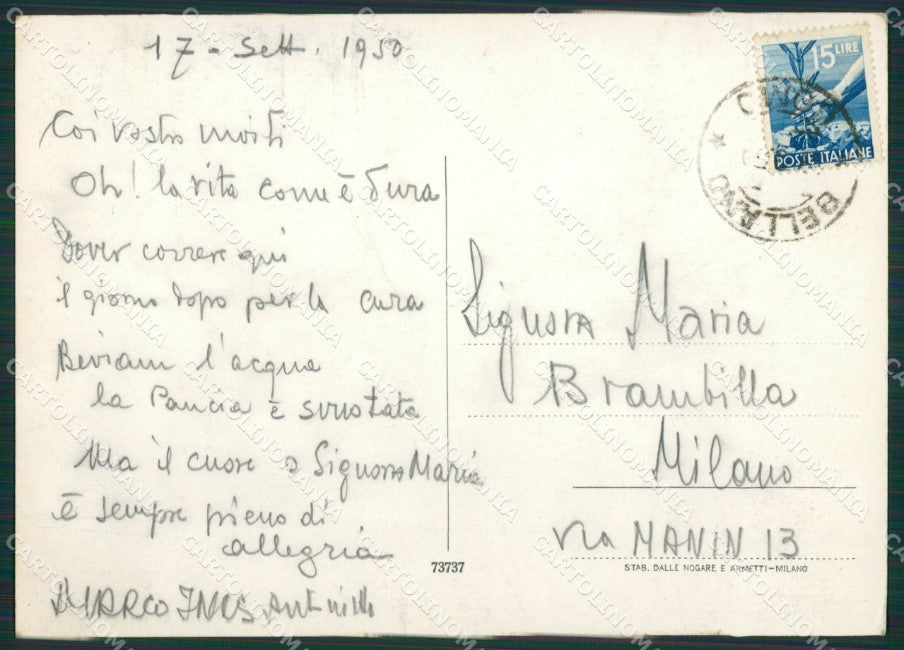 17 - Sett. 1950
Coi vostri
Oh! la vita come è dura
Dover correre qui
il giorno dopo per la cura
Beviam l'acqua
la Pancia è svuotata
Ma il cuore o Signora Maria
è sempre pieno di
allegria
MARCO INES
15 LIRE
POSTE ITALIANE
BELLANO
Signora Maria
Brambilla
Milano
Via MANIN 13
73737
STAB. DALLE NOGARE E ARMETTI-MILANO
CARTOLINOMANIA